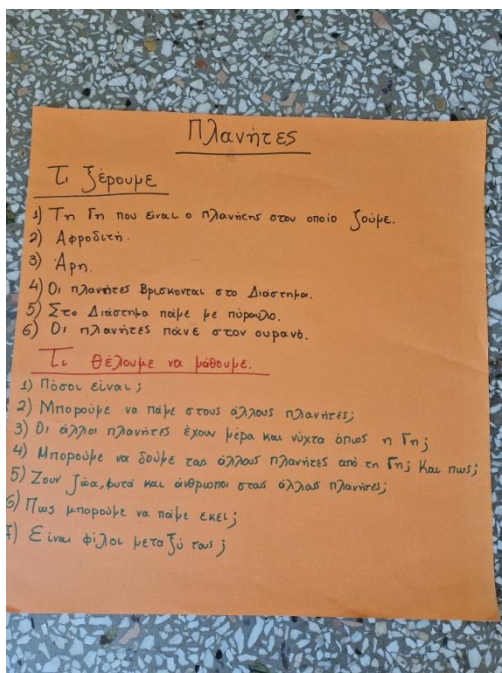 Πλανήτες
Τι ξέρουμε
1) Τη Γη που είναι ο πλανήτης στον οποίο ζούμε.
2) Αφροδίτη.
3) Άρη.
4) Οι πλανήτες βρίσκονται στο Διάστημα.
5) Στο Διάστημα πάμε με πύραυλο.
6) Οι πλανήτες πάνε στον ουρανό.
Τι θέλουμε να μάθουμε.
1) Πόσοι είναι;
2) Μπορούμε να πάμε στους άλλους πλανήτες;
3) Οι άλλοι πλανήτες έχουν μέρα και νύχτα όπως η Γη;
4) Μπορούμε να δούμε τους άλλους πλανήτες από τη Γη; Και πως;
5) Ζουν ζώα, φυτά και άνθρωποι στους άλλους πλανήτες;
6) Πως μπορούμε να πάμε εκεί;
7) Είναι φίλοι μεταξύ τους;